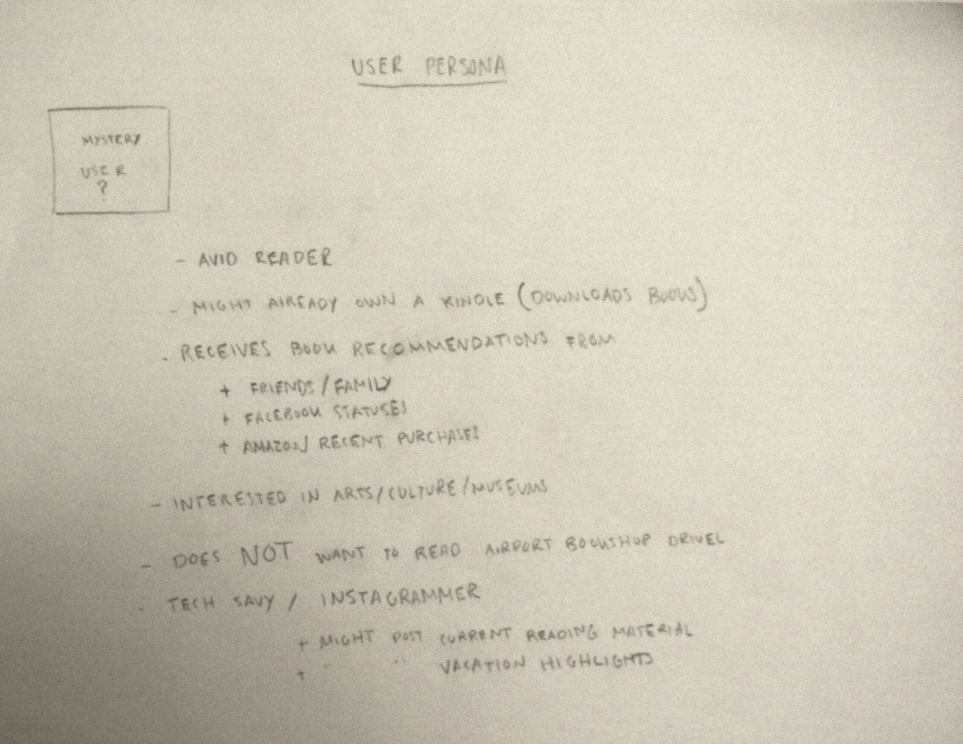 USER PERSONA
MYSTERY
USER
?
- AVID READER
- MIGHT ALREADY OWN A KINDLE (DOWNLOADS BOOKS)
- RECEIVES BOOK RECOMMENDATIONS FROM
+ FRIENDS/FAMILY
+ FACEBOOK STATUSES
+ AMAZON RECENT PURCHASES
- INTERESTED IN ARTS/CULTURE/MUSEUMS
- DOES NOT WANT TO READ AIRPORT BOOKSHOP DRIVEL
- TECH SAVY / INSTAGRAMMER
+ MIGHT POST CURRENT READING MATERIAL
+ " " VACATION HIGHLIGHTS